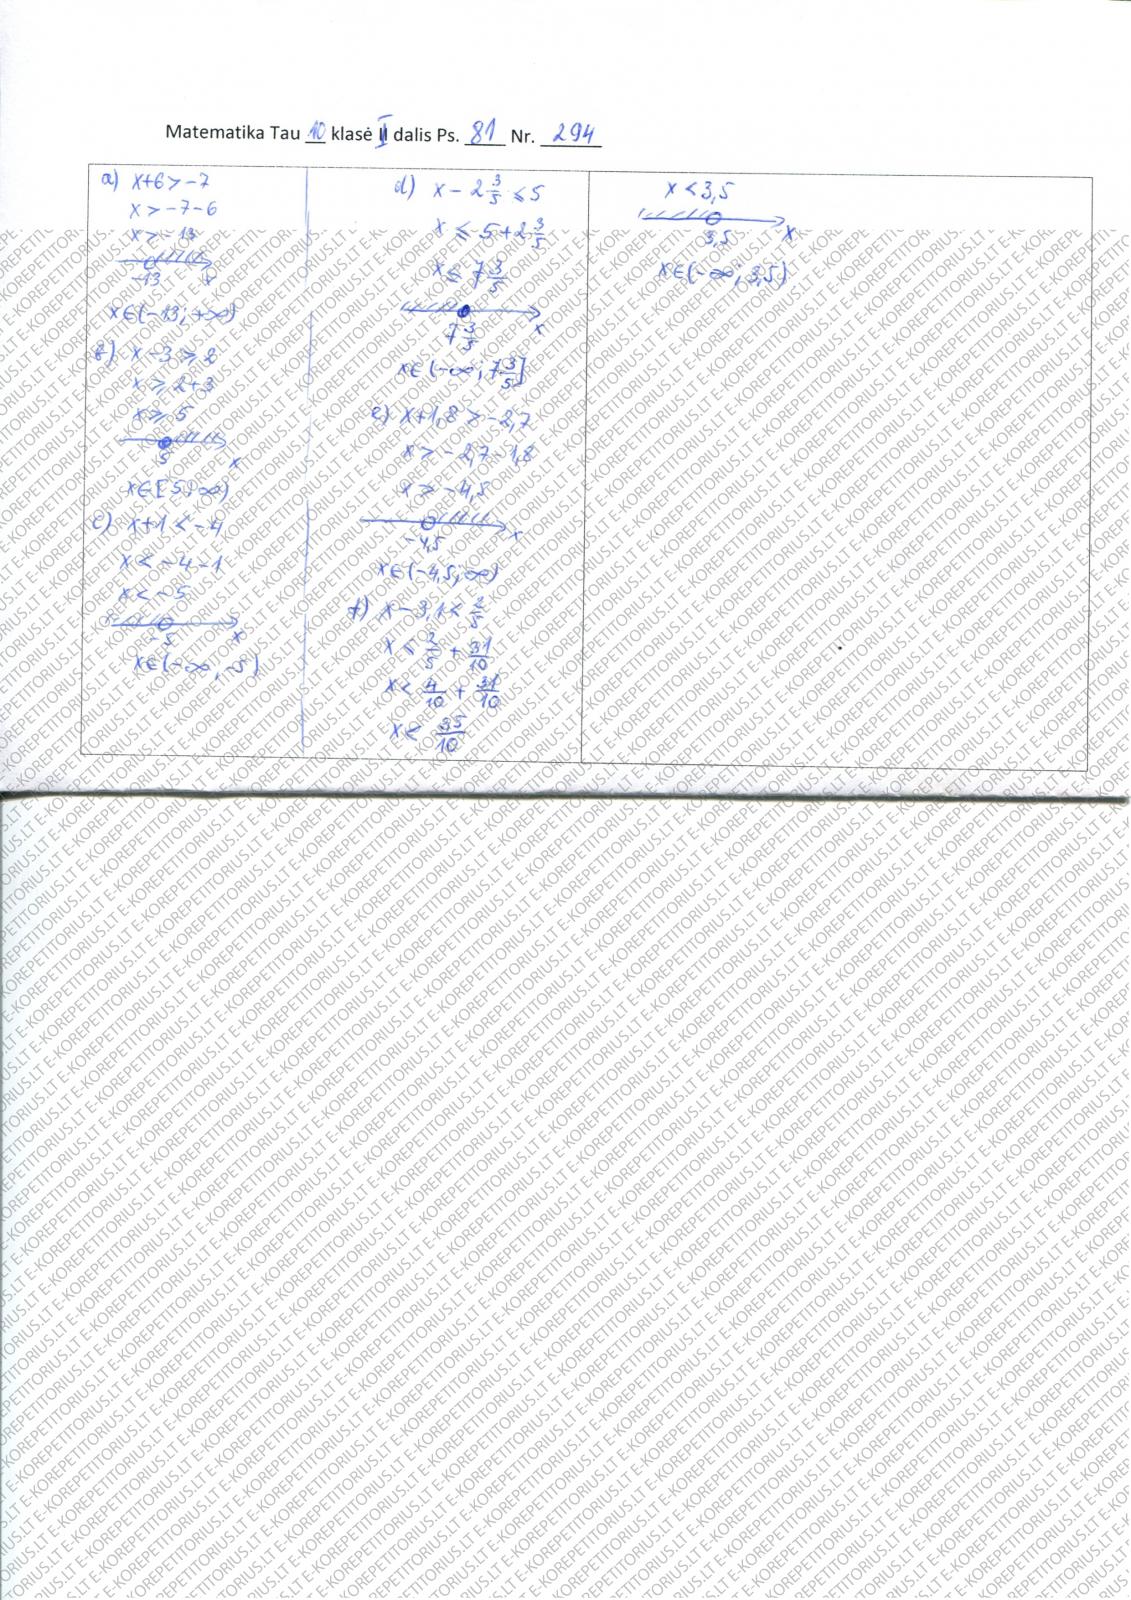 Matematika Tau 10 klasė II dalis Ps. 81 Nr. 294
a) x+6 > -7
x > -7-6
x > -13
-13 x
x∈(-13; +∞)
b) x-3 ⩾ 2
x ⩾ 2+3
x ⩾ 5
5 x
x∈[5; ∞)
c) x+1 < -4
x < -4-1
x < -5
-5 x
x∈(-∞, -5)
d) x - 2 3/5 ⩽ 5
x ⩽ 5+2 3/5
x ⩽ 7 3/5
7 3/5 x
x∈(-∞; 7 3/5]
e) x+1,8 > -2,7
x > -2,7-1,8
x > -4,5
-4,5 x
x∈(-4,5; ∞)
f) x-3,1 < 2/5
x < 2/5 + 31/10
x < 4/10 + 31/10
x < 35/10
x < 3,5
3,5 x
x∈(-∞; 3,5)
E-KOREPETITORIUS.LT